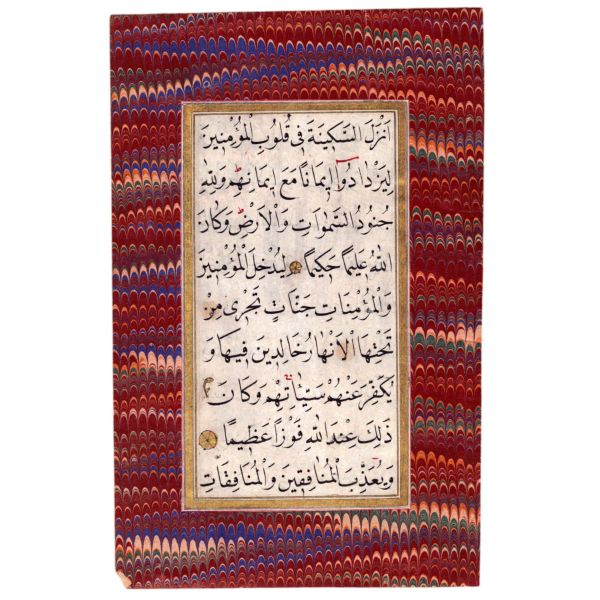 اَنْزَلَ السَّكِينَةَ فِى قُلُوبِ الْمُؤْمِنِينَ
لِيَزْدَادُوا اِيمَانًا مَعَ اِيمَانِهِمْ وَلِلّٰهِ
جُنُودُ السَّمٰوَاتِ وَالْاَرْضِ وَكَانَ
اللّٰهُ عَلِيمًا حَكِيمًا لِيُدْخِلَ الْمُؤْمِنِينَ
وَالْمُؤْمِنَاتِ جَنَّاتٍ تَجْرِى مِنْ
تَحْتِهَا الْاَنْهَارُ خَالِدِينَ فِيهَا وَ
يُكَفِّرَ عَنْهُمْ سَيِّئَاتِهِمْ وَكَانَ
ذٰلِكَ عِنْدَ اللّٰهِ فَوْزًا عَظِيمًا
وَيُعَذِّبَ الْمُنَافِقِينَ وَالْمُنَافِقَاتِ